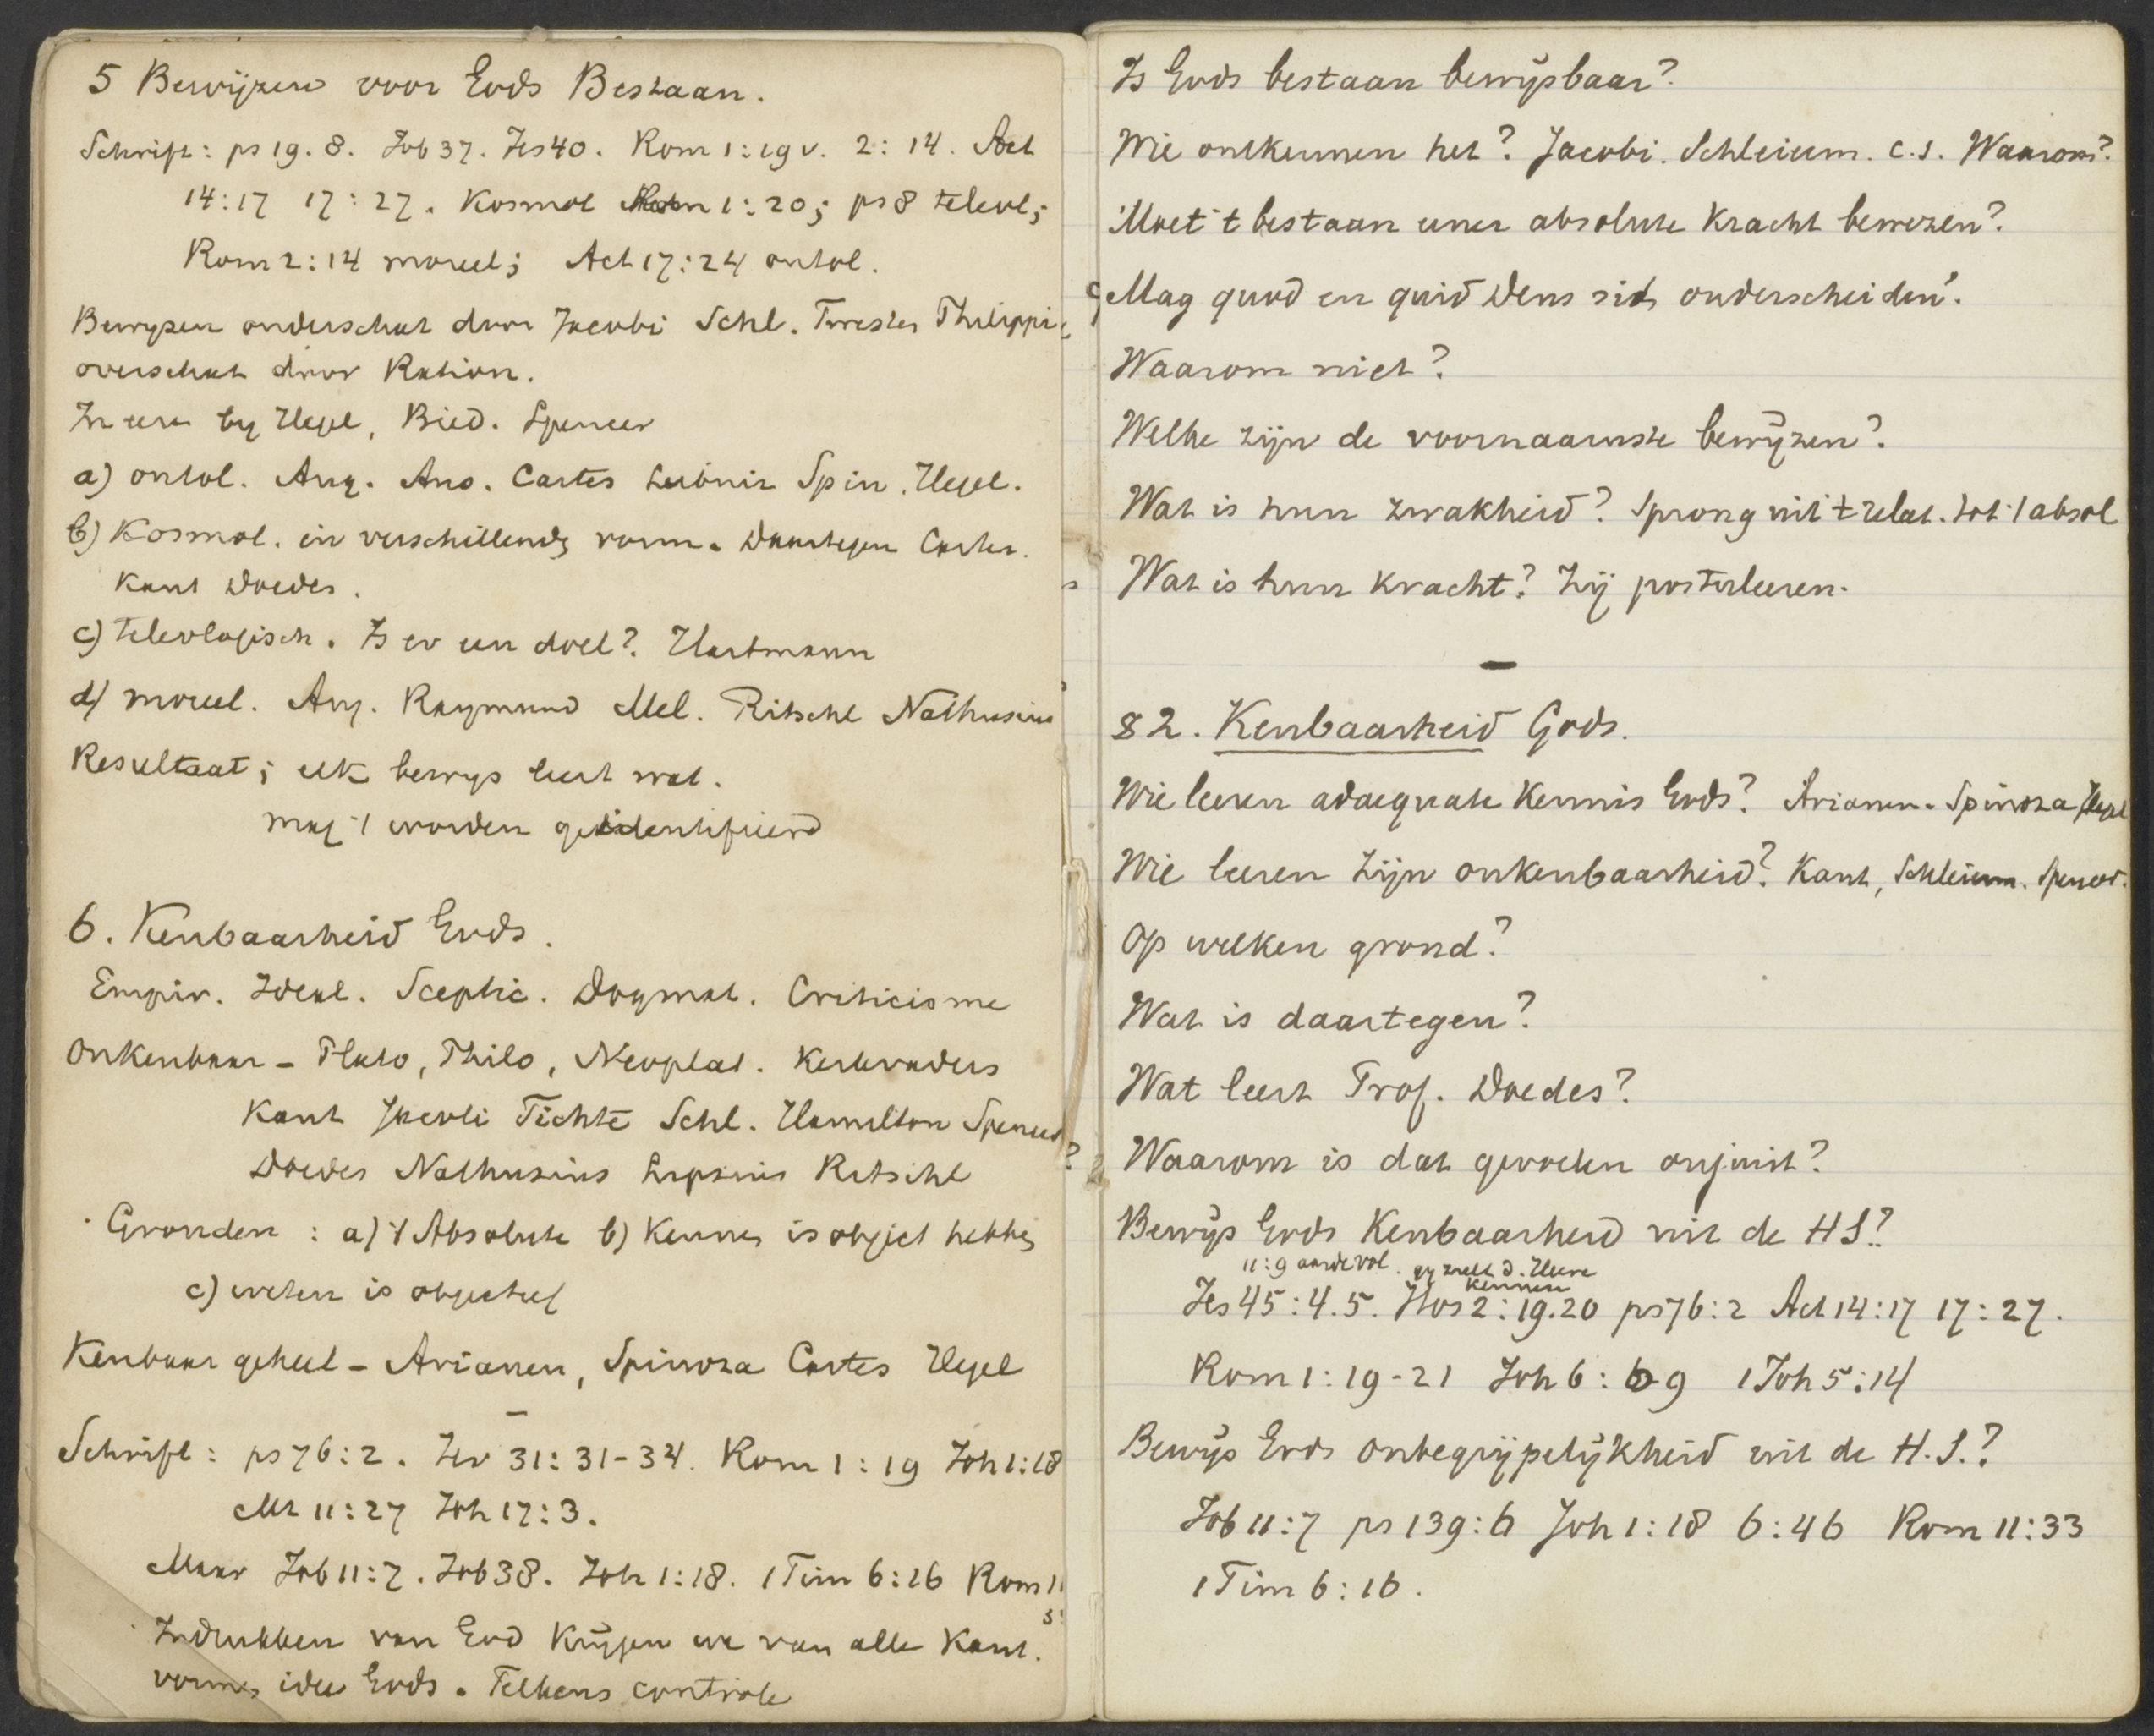 5 Bewijzen voor Gods Bestaan.
Schrift: ps 19. 8. Job 37. Jes 40. Rom 1:19 v. 2:14. Act
14:17 17:27. Kosmol Rom 1:20; ps 8 teleol;
Rom 2:14 moreel; Act 17:24 ontol.
Bewyzen onderschat door Jacobi Schl. Twesten Philippi
overschat door Ration.
In eere by Hegel, Bied. Spencer
a) ontol. Aug. Ans. Cartes Leibniz Spin. Hegel.
b) Kosmol. in verschillende vorm. Daartegen Cartes.
Kant Doedes.
c) teleologisch. Is er een doel? Hartmann
d) moreel. Aug. Raymund Mel. Ritschl Nathusius
Resultaat; elk bewys leert wat.
mag 't worden geidentifieerd
6. Kenbaarheid Gods.
Empir. Ideal. Sceptic. Dogmat. Criticisme
Onkenbaar - Plato, Philo, Neoplat. Kerkvaders
Kant Jacobi Fichte Schl. Hamilton Spencer
Doedes Nathusius Lipsius Ritschl
Gronden: a) 't Absolute b) Kennen is object hebben
c) weten is objectief
Kenbaar geheel - Arianen, Spinoza Cartes Hegel
Schrift: ps 76:2. Jer 31:31-34. Rom 1:19 Joh 1:18
Mt 11:27 Joh 17:3.
Maar Job 11:7. Job 38. Joh 1:18. 1 Tim 6:16 Rom 11
Indrukken van God Krijgen we van alle Kant.
vormen idee Gods. Telkens controle
Is Gods bestaan bewijsbaar?
Wie ontkennen het? Jacobi. Schleierm. c.s. Waarom?
Moet 't bestaan eener absolute Kracht bewezen?
Mag quod en quid Deus sit onderscheiden?
Waarom niet?
Welke zijn de voornaamste bewijzen?
Wat is hun zwakheid? Sprong uit 't relat. tot 't absol
Wat is hun kracht? Zij postuleeren.
§2. Kenbaarheid Gods.
Wie leeren adaequate Kennis Gods? Arianen. Spinoza Hegel
Wie leeren Zijn onkenbaarheid? Kant, Schleierm. Spencer.
Op welken grond?
Wat is daartegen?
Wat leert Prof. Doedes?
Waarom is dat gevoelen onjuist?
Bewijs Gods Kenbaarheid uit de H S?
11:9 aarde vol. gy zult d. Heere
kennen
Jes 45:4.5. Hos 2:19.20 ps 76:2 Act 14:17 17:27.
Rom 1:19-21 Joh 6:69 1 Joh 5:14
Bewijs Gods Onbegrijpelijkheid uit de H.S.?
Job 11:7 ps 139:6 Joh 1:18 6:46 Rom 11:33
1 Tim 6:16.